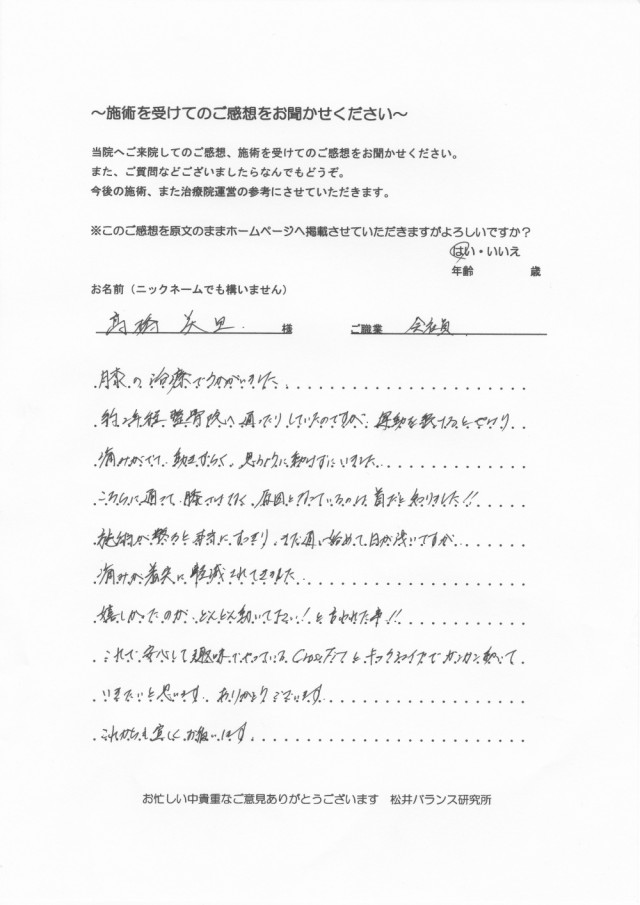 ～施術を受けてのご感想をお聞かせください～
当院へご来院してのご感想、施術を受けてのご感想をお聞かせください。
また、ご質問などございましたらなんでもどうぞ。
今後の施術、また治療院運営の参考にさせていただきます。
※このご感想を原文のままホームページへ掲載させていただきますがよろしいですか？
はい・いいえ
年齢 歳
お名前（ニックネームでも構いません）
髙橋 美里 様 ご職業 会社員
膝の治療でうかがいました。
約2年程整骨院へ通ったりしていたのですが、運動を数すると やはり
痛みがでて、動きづらく、思うように動けずにいました。
こちらに通って、膝だけでなく、原因となっているのは首だと知りました!!
施術が終ると非常にすっきり、まだ通い始めて日が浅いですが
痛みが着実に軽減されてきました。
嬉しかったのが、どんどん動いてよい！と言われた事!!
これで安心して趣味でやっている CrossFitとキックボクシングでガンガン動いて
いきたいと思います。ありがとうございます。
これからも宜しくお願いします。
お忙しい中貴重なご意見ありがとうございます 松井バランス研究所